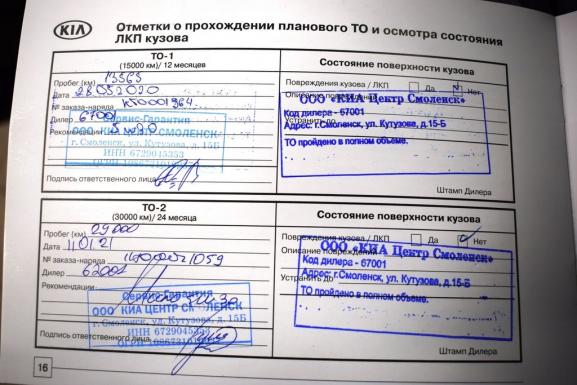 KIA
Отметки о прохождении планового ТО и осмотра состояния
ЛКП кузова
ТО-1
(15000 км)/ 12 месяцев
Состояние поверхности кузова
Пробег (км) 13565
Дата 28.05.2020
№ заказа-наряда
Дилер 67001
Рекомендации
Сервис-Гарантия
ООО КИА ЦЕНТР СМОЛЕНСК
г. Смоленск, ул. Кутузова, д. 15Б
ИНН 6729045353
Подпись ответственного лица
Повреждения кузова / ЛКП Да Нет
Описание повреждений
Устранить до
ООО «КИА Центр Смоленск»
Код дилера - 67001
Адрес: г.Смоленск, ул. Кутузова, д.15-Б
ТО пройдено в полном объеме.
Штамп Дилера
ТО-2
(30000 км)/ 24 месяца
Состояние поверхности кузова
Пробег (км) 29000
Дата 11.01.21
№ заказа-наряда
Дилер
Рекомендации
Сервис-Гарантия
ООО КИА ЦЕНТР СМОЛЕНСК
г. Смоленск, ул. Кутузова, д. 15Б
ИНН 6729045353
Подпись ответственного лица
Повреждения кузова / ЛКП Да Нет
Описание
Устранить до
ООО «КИА Центр Смоленск»
Код дилера - 67001
Адрес: г.Смоленск, ул. Кутузова, д.15-Б
ТО пройдено в полном объеме.
Штамп Дилера
16